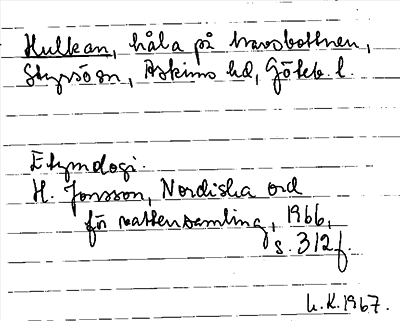 Hulkan, håla på havsbottnen,
Styrsö sn, Askims hd, Göteb. l.
Etymologi.
H. Jonsson, Nordiska ord
för vattensamling, 1966,
s. 312 f.
h.K. 1967.